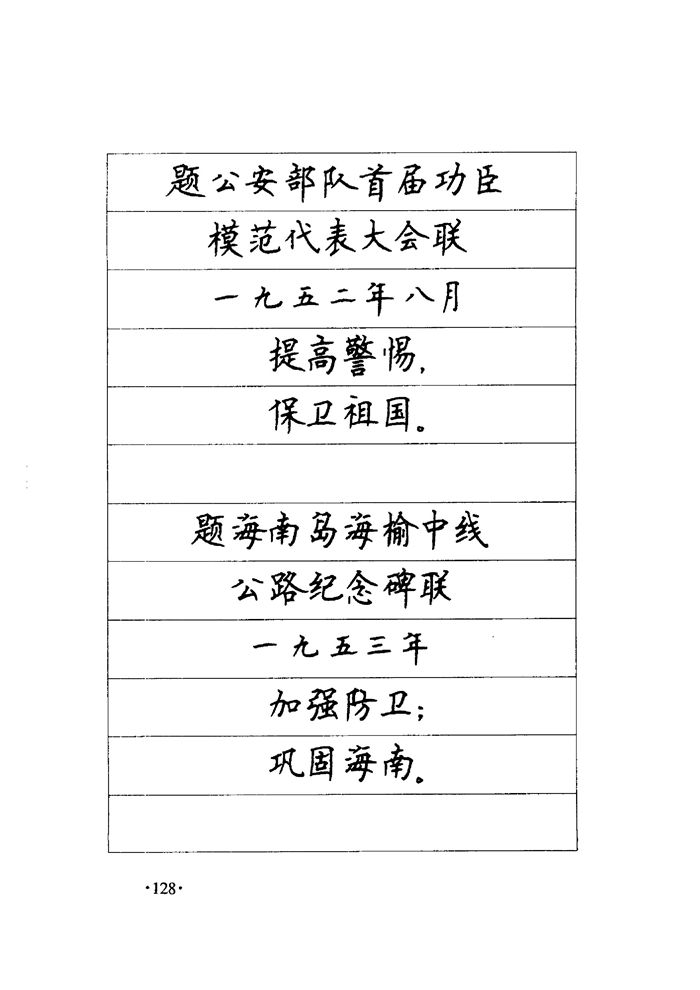 题公安部队首届功臣
模范代表大会联
一九五二年八月
提高警惕,
保卫祖国。
题海南岛海榆中线
公路纪念碑联
一九五三年
加强防卫;
巩固海南。
·128·